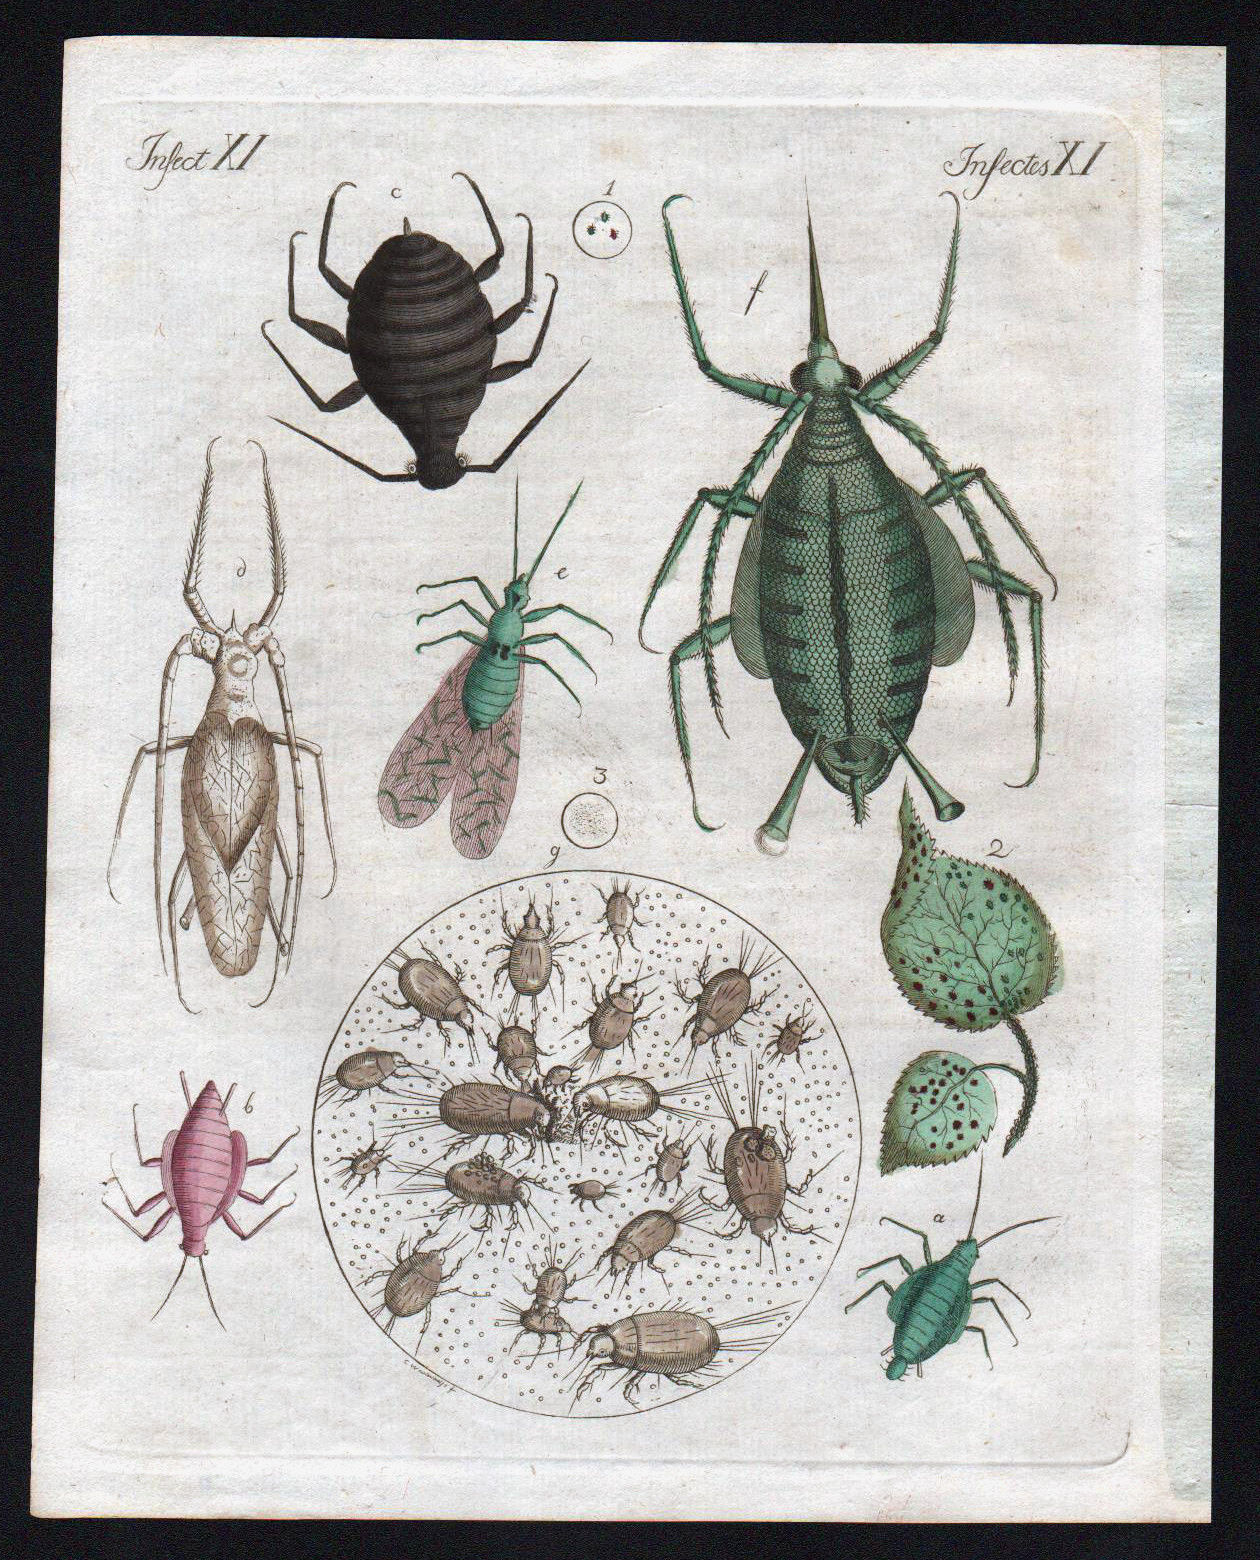 Insect XI
Insectes XI
c
1
f
d
e
3
g
2
b
a